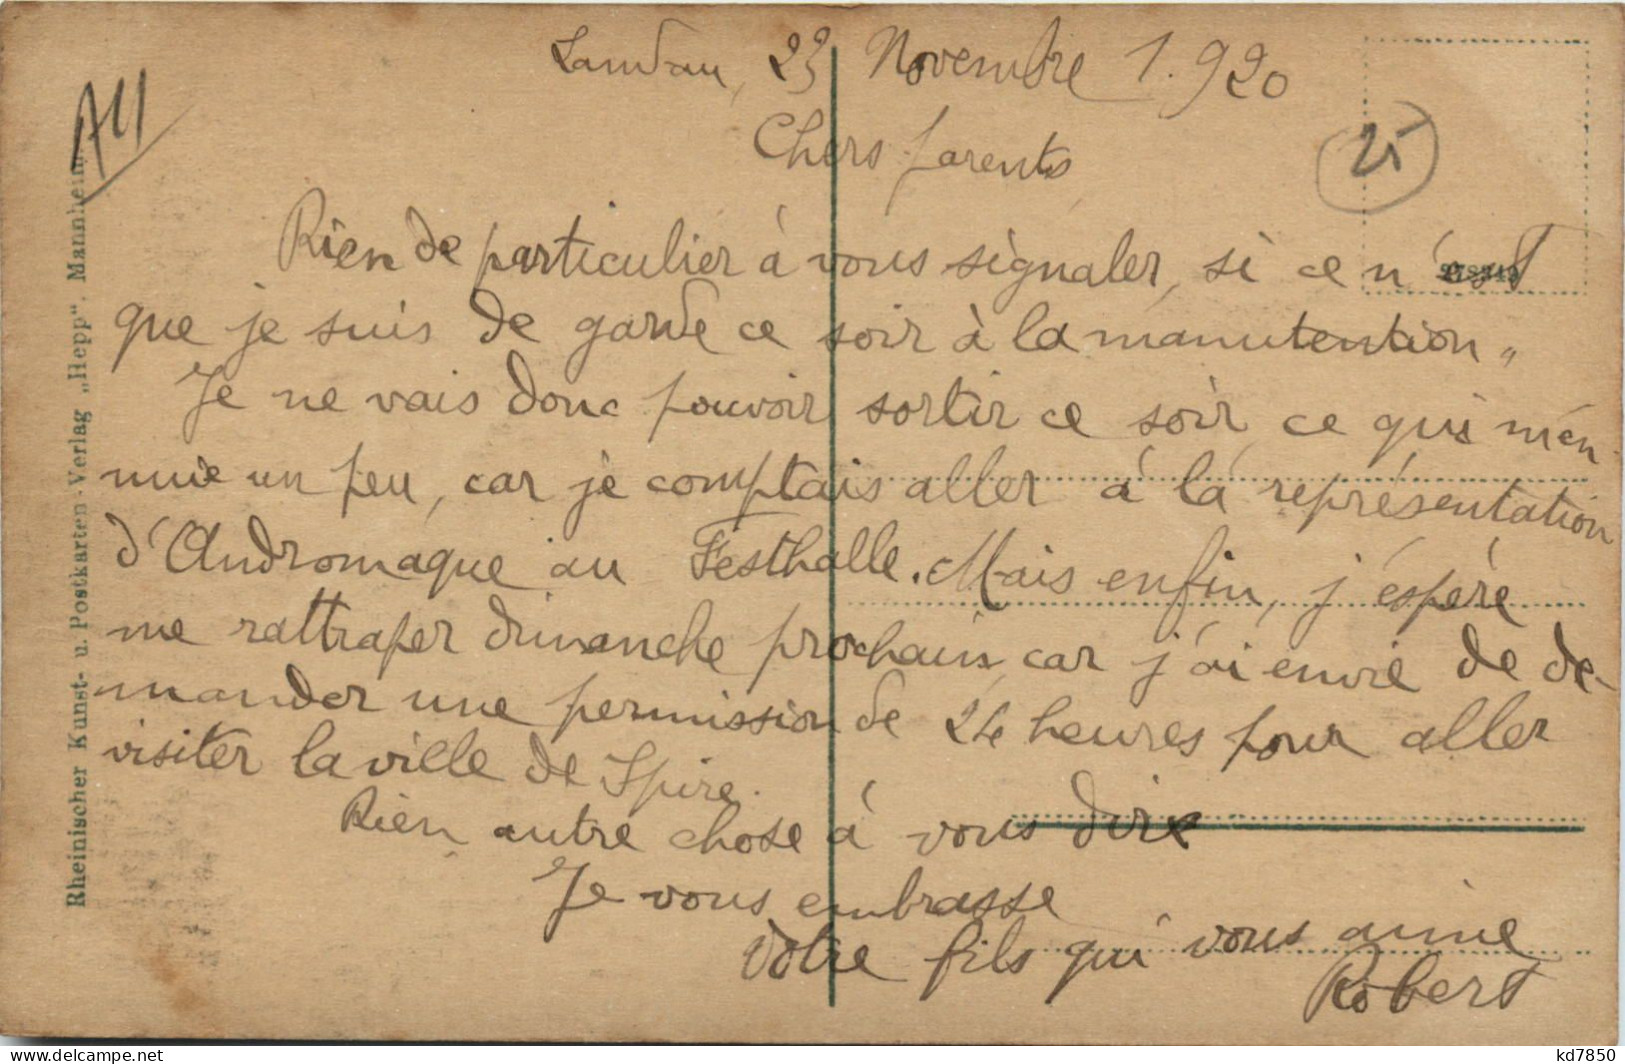 Landau, 23 Novembre 1.920
Chers parents
Rien de particulier à vous signaler, si ce n'est
que je suis de garde ce soir à la manutention.
Je ne vais donc pouvoir sortir ce soir, ce qui m'en
nuie un peu, car je comptais aller à la représentation
d'Andromaque au Festhalle. Mais enfin, j'espère
me rattraper dimanche prochain, car j'ai envie de de-
mander une permission de 24 heures pour aller
visiter la ville de Spire.
Rien autre chose à vous dire
Je vous embrasse
Votre fils qui vous aime
Robert
25
Rheinischer Kunst- u. Postkarten-Verlag „Hepp". Mannheim
kd7850